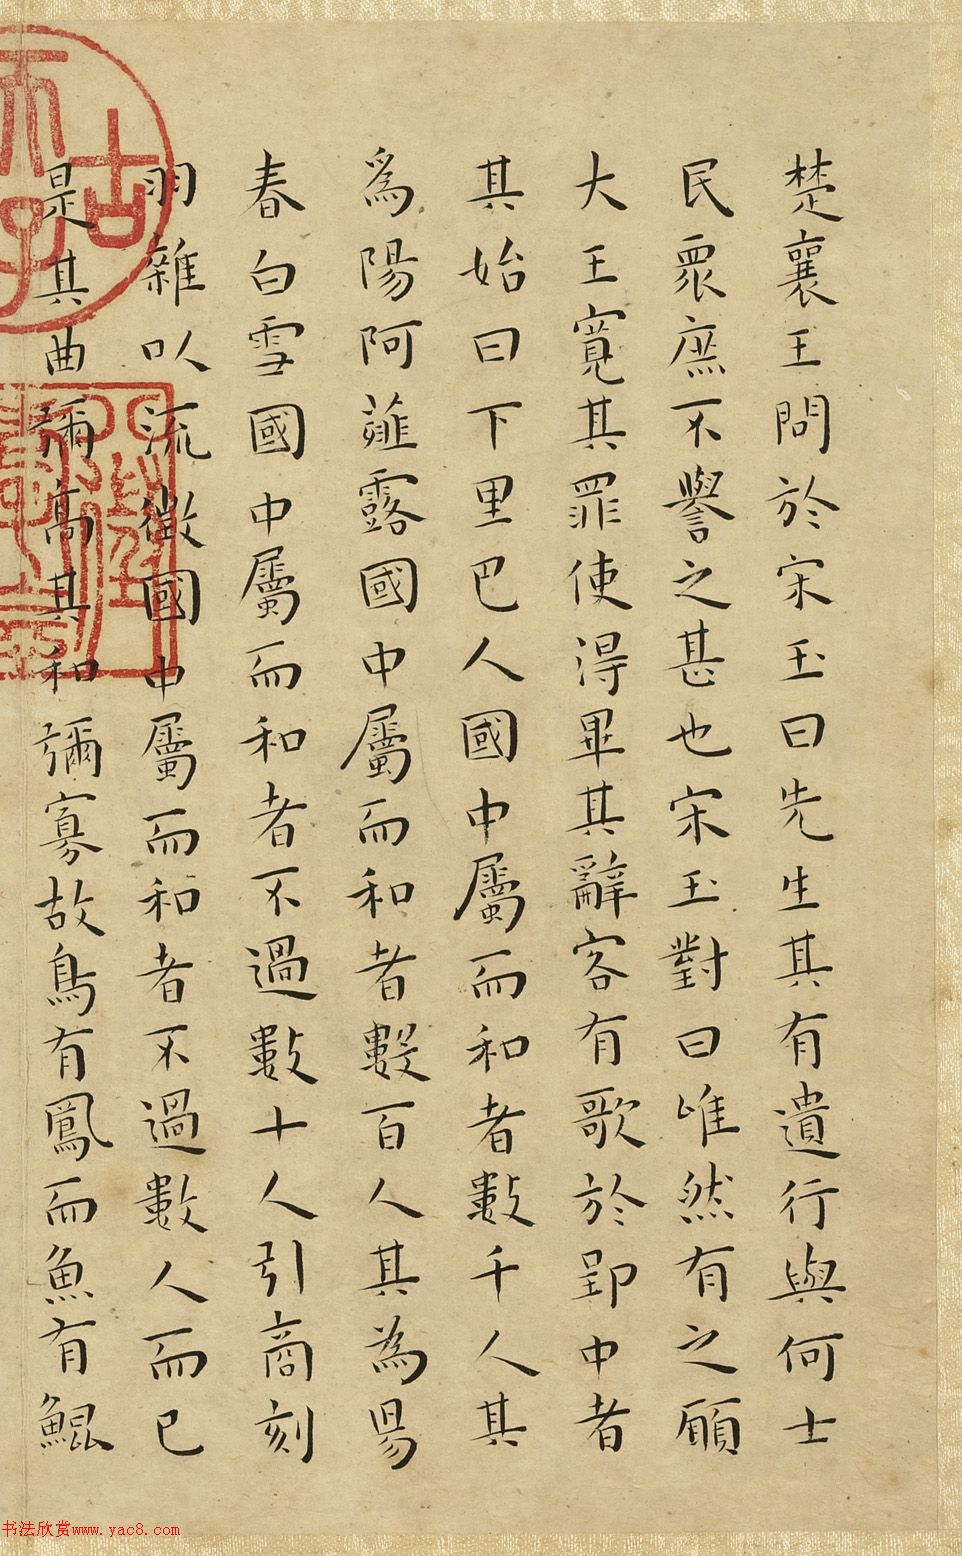 楚襄王問於宋玉曰先生其有遺行與何士
民眾庶不譽之甚也宋玉對曰唯然有之願
大王寬其罪使得畢其辭客有歌於郢中者
其始曰下里巴人國中屬而和者數千人其
為陽阿薤露國中屬而和者數百人其為陽
春白雪國中屬而和者不過數十人引商刻
羽雜以流徵國中屬而和者不過數人而已
是其曲彌高其和彌寡故鳥有鳳而魚有鯤
书法欣赏www.yac8.com